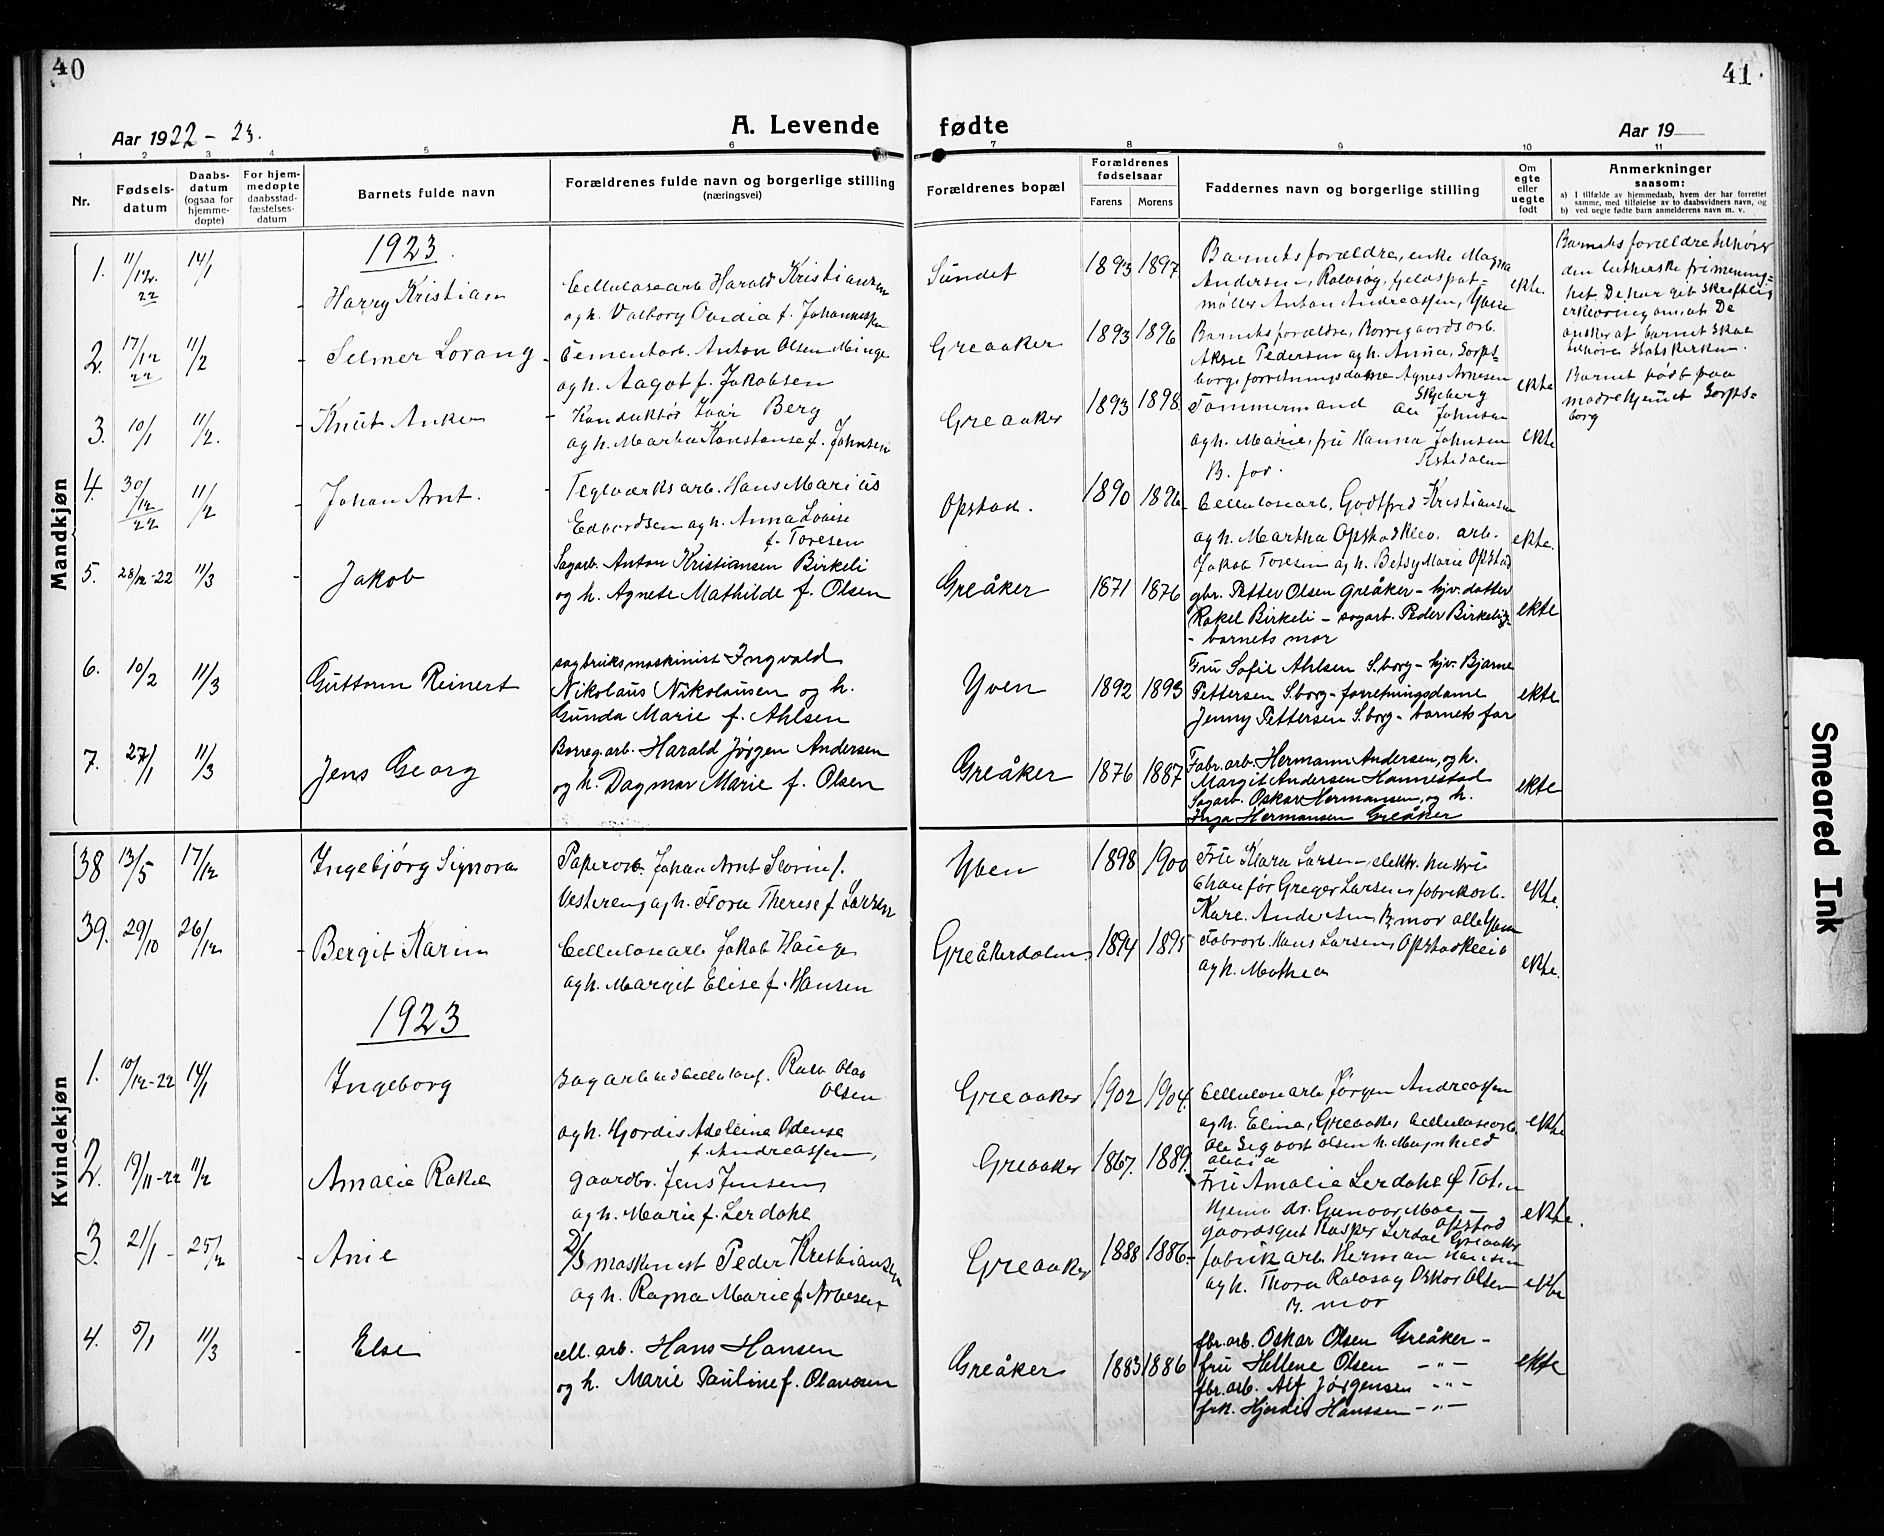 40
41
Aar 1922 – 23.
A. Levende fødte
Aar 19
1 2 3 4 5 6 7 8 9 10 11
Nr.
Fødsels-
datum
Daabs-
datum
(ogsaa for
hjemme-
døpte)
For hjem-
medøpte
daabsstad-
fæstelses-
datum
Barnets fulde navn
Forældrenes fulde navn og borgerlige stilling
(næringsvei)
Forældrenes bopæl
Forældrenes
fødselsaar
Farens
Morens
Faddernes navn og borgerlige stilling
Om
egte
eller
uegte
født
Anmerkninger
saasom:
a) I tilfælde av hjemmedaab, hvem der har forrettet
samme, med tilføielse av to daabsvidners navn, og
b) ved uegte fødte barn anmelderens navn m. v.
Mandkjøn
1923.
1. 11/12. 22 14/1
Harry Kristian
Cellulosearb. Harald Kristiansen
og h. Valborg Ovidia f. Johannessen
Sundet 1893 1897
Barnets forældre, enke Magna
Andersen, Rolvsøy,
møller Anton Andreassen, Yven
ekte.
Barnets forældre tilhører
den lutherske frimenig-
het. De har git skriftlig
erklæring om, at De
ønsker at barnet skal
tilhøre Statskirken.
2. 17/12 22 11/2
Selmer Lorang
Cementarb. Anton Olsen Minge
og h. Aagot f. Jakobsen
Greaaker 1893 1896
Barnets forældre, Borregaardsarb.
Aksel Pedersen og h. Anna, Sarps-
borg, forretningsdame Agnes Arnesen
Skjeberg
ekte
Barnet født paa
mødrehjemmet Sarps-
borg
3. 10/1 11/2.
Knut Anker
Konduktør Ivar Berg
og h. Martha Konstanse f. Johnsen
Greaaker 1893 1898.
Tømmermand Johnsen
og h. Marie, fru Hanna Johnsen
Tistedalen
B. far.
ekte
4. 30/12 22 11/2
Johan Arnt.
Teglværksarb. Hans Marius
Edvardsen og h. Anna Lovise
f. Toresen
Opstad. 1890 1896
Cellulosearb. Godtfred Kristiansen
og h. Martha Opstadkleiv, arb.
Jakob Toresen og h. Betsy Marie Opstad
ekte.
5. 28/12-22 11/3
Jakob
Sagarb. Anton Kristiansen Birkeli
og h. Agnete Mathilde f. Olsen
Greåker 1871 1876
gbr. Petter Olsen Greåker – hjv. datter
Rakel Birkeli – sagarb. Peder Birkeli
– barnets mor
ekte
6. 10/2 11/3
Guttorm Reinert
sagbruksmaskinist Ingvald
Nikolaus Nikolausen og h.
Gunda Marie f. Ahlsen
Yven 1892 1893
Fru Sofie Ahlsen S.borg – hjv. Bjarne
Pettersen S.borg – forretningsdame
Jenny Pettersen S.borg – barnets far
ekte
7. 27/1 11/3
Jens Georg
Borreg.arb. Harald Jørgen Andersen
og h. Dagmar Marie f. Olsen
Greåker 1876 1887
Fabr.arb. Hermann Andersen, og h.
Margit Andersen Hannestad
Sagarb. Oskar Hermansen, og h.
Inga Hermansen Greåker
ekte
Kvindekjøn
38 13/5 17/12
Ingebjørg Signora
Papirarb. Johan Arnt
Vestereng og h. Flora Therese f. Larsen
Yven 1898 1900
Fru Klara Larsen, elektr.
Chauffør Greger Larsen, fabrikarb.
Kare. Andersen, B. mor alle Yven
ekte.
39. 29/10 26/12
Bergit Karin
Cellulosearb. Jakob Hauge
og h. Margit Elise f. Hansen
Greåkerdalen 1894 1895
Fabrarb. Hans Larsen, Opstadkleiv
og h. Mathea
ekte.
1923
1. 10/12-22 14/1
Ingeborg
sagarb. ved Cellulosef. Olav
Olsen
og h. Hjørdis Adeleine Odense
f. Andreassen,
Greaaker 1902 1904.
Cellulosearb. Jørgen Andreassen
og h. Elina, Greaaker, Cellulosearb.
Ole Sigvart Olsen h. Magnhild
ekte
2. 19/11-22 11/2
Amalie Rakel
gaardbr. Jens Jensen
og h. Marie f. Lerdahl
Greaaker 1867. 1889.
Fru Amalie Lerdahl Ø Toten
hjemv. dr. Gunvor Moe –
Opstad
gaardsgut Kasper Lerdal Greaaker
ekte.
3. 21/1 – 25/2
Anie
maskinist Peder Kristiansen
og h. Ragna Marie f. Arvesen
Greaaker 1888 1886 –
fabrikarb. Herman Hansen
og h. Thora Rolvsøy Oskar Olsen
B. mor
ekte
4. 5/1 11/3
Else
cell. arb. Hans Hansen
og h. Marie Pauline f. Olavesen
Greåker 1883 1886
fbr. arb. Oskar Olsen Greåker –
fru Hellene Olsen – „ –
fbr. arb. Alf Jørgensen – „ –
frk. Hjørdis Hanssen – „ –
ekte
Smeared Ink